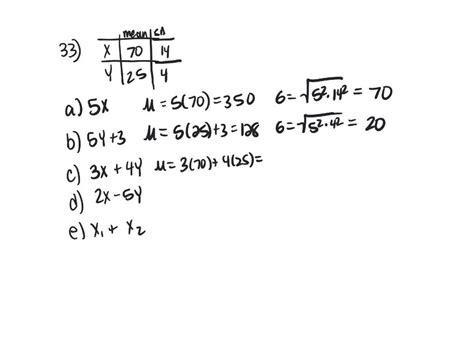 mean SD
33) X 70 14
Y 25 4
a) 5X μ = 5(70) = 350 σ = √5²·14² = 70
b) 5Y+3 μ = 5(25)+3 = 128 σ = √5²·4² = 20
c) 3X + 4Y μ = 3(70) + 4(25) =
d) 2X - 5Y
e) X₁ + X₂